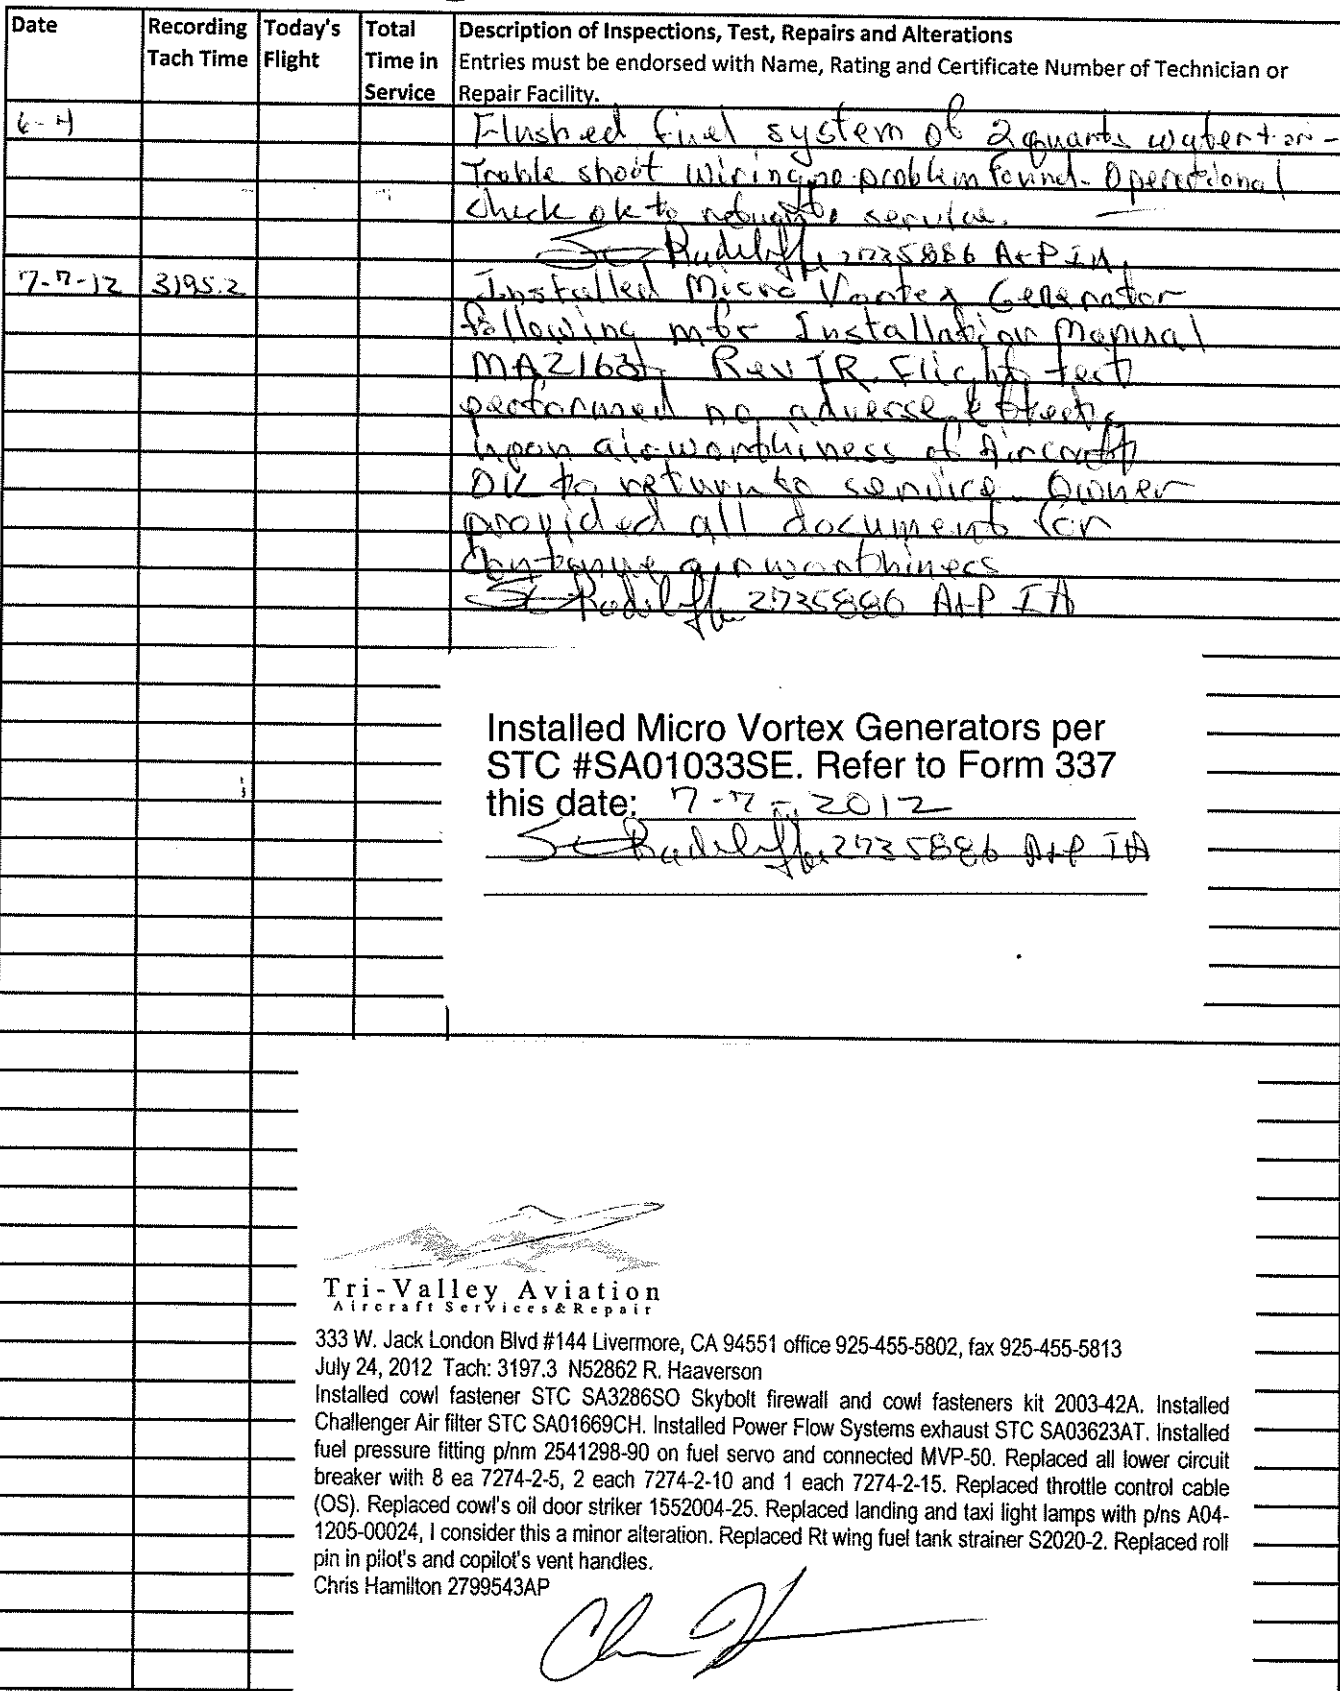 Date Recording Tach Time Today's Flight Total Time in Service Description of Inspections, Test, Repairs and Alterations
Entries must be endorsed with Name, Rating and Certificate Number of Technician or
Repair Facility.
Flushed fuel system of 2 quarts water
Troble shoot wiring no problem found. Operational
check ok to service.
2735886 A+P IA
7-7-12 3195.2 Installed Micro Vortex Generator
following mfr Installation Manual
MA2163 Rev IR. Flight test
performed no adverse effects
upon airworthiness of Aircraft
OK to return to service. Owner
provided all document for
continue airworthiness
2735886 A+P IA
Installed Micro Vortex Generators per
STC #SA01033SE. Refer to Form 337
this date: 7-7-2012
2735886 A+P IA
Tri-Valley Aviation
Aircraft Services & Repair
333 W. Jack London Blvd #144 Livermore, CA 94551 office 925-455-5802, fax 925-455-5813
July 24, 2012 Tach: 3197.3 N52862 R. Haaverson
Installed cowl fastener STC SA3286SO Skybolt firewall and cowl fasteners kit 2003-42A. Installed
Challenger Air filter STC SA01669CH. Installed Power Flow Systems exhaust STC SA03623AT. Installed
fuel pressure fitting p/nm 2541298-90 on fuel servo and connected MVP-50. Replaced all lower circuit
breaker with 8 ea 7274-2-5, 2 each 7274-2-10 and 1 each 7274-2-15. Replaced throttle control cable
(OS). Replaced cowl's oil door striker 1552004-25. Replaced landing and taxi light lamps with p/ns A04-
1205-00024, I consider this a minor alteration. Replaced Rt wing fuel tank strainer S2020-2. Replaced roll
pin in pilot's and copilot's vent handles.
Chris Hamilton 2799543AP